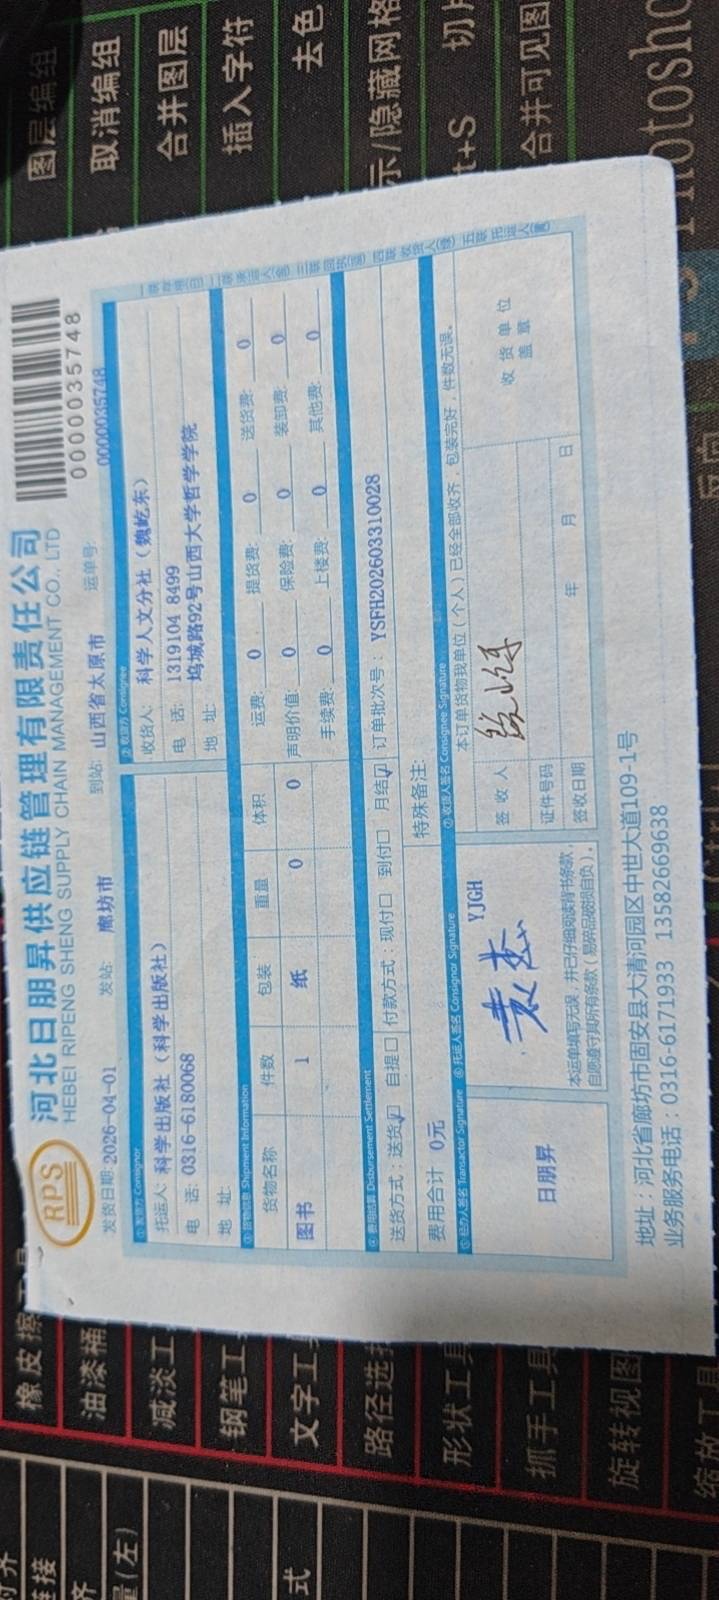 RPS
河北日朋昇供应链管理有限责任公司
HEBEI RIPENG SHENG SUPPLY CHAIN MANAGEMENT CO., LTD
0000035748
发货日期: 2026-04-01 发站: 廊坊市 到站: 山西省太原市 运单号: 0000035748
①发货方 Consignor
托运人: 科学出版社（科学出版社）
电 话: 0316-6180068
地 址:
②收货方 Consignee
收货人: 科学人文分社（魏屹东）
电 话: 1319104 8499
地 址: 坞城路92号山西大学哲学学院
③货物信息 Shipment Information
货物名称 件数 包装 重量 体积
图书 1 纸 0 0
运费: 0 提货费: 0 送货费: 0
声明价值: 0 保险费: 0 装卸费: 0
手续费: 0 上楼费: 0 其他费: 0
④费用结算 Disbursement Settlement
送货方式：送货☑ 自提☐ 付款方式：现付☐ 到付☐ 月结☑ 订单批次号： YSFH202603310028
费用合计 0元 特殊备注:
⑤经办人签名 Transactor Signature
日朋昇
⑥托运人签名 Consignor Signature
YJGH
本运单填写无误，并已仔细阅读背书条款，
自愿遵守其所有条款（易碎品破损自负）。
⑦收货人签名 Consignee Signature
本订单货物我单位（个人）已经全部收齐，包装完好，件数无误。
签 收 人
证件号码
签收日期 年 月 日
收 货 单 位
盖 章
地址：河北省廊坊市固安县大清河园区中世大道109-1号
业务服务电话：0316-6171933 13582669638
图层编组
取消编组
合并图层
插入字符
去色
示/隐藏网格
t+S
切片
合并可见图
Photosho
油漆桶
减淡工
钢笔工
文字工
路径选择
形状工具
抓手工具
旋转视图
缩放工具
量(左)
式